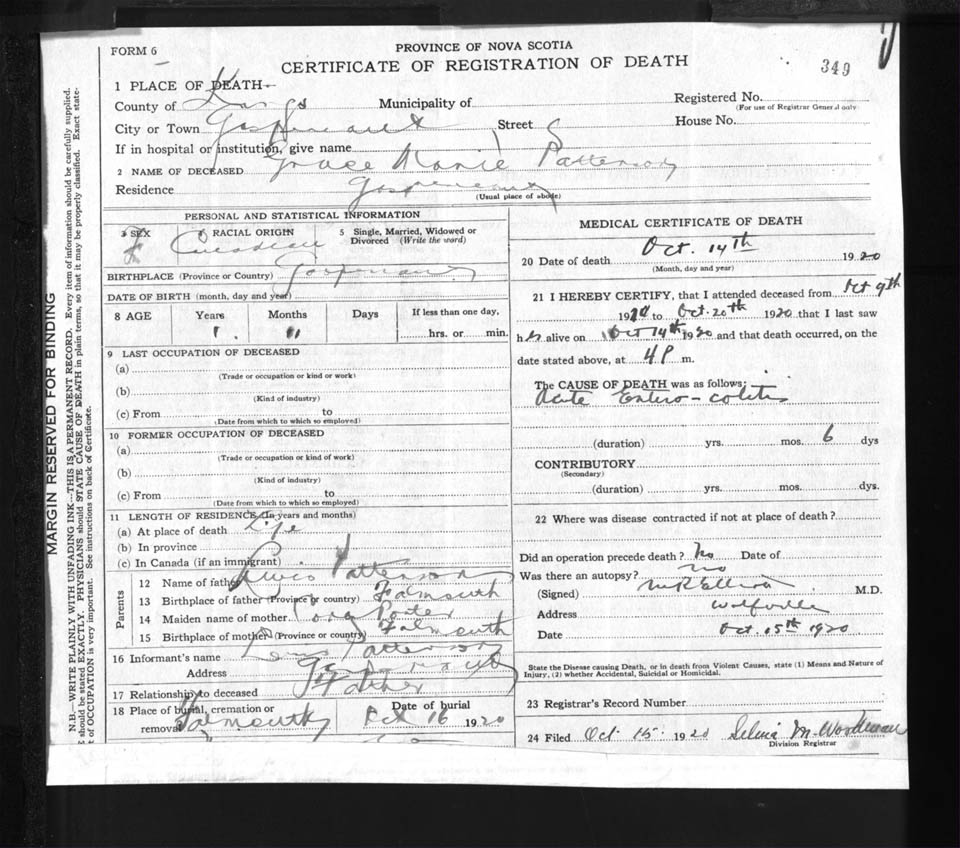 FORM 6
PROVINCE OF NOVA SCOTIA
CERTIFICATE OF REGISTRATION OF DEATH
349
1 PLACE OF DEATH
County of Kings Municipality of Registered No.
(For use of Registrar General only
City or Town Gaspereaux Street House No.
If in hospital or institution, give name
2 NAME OF DECEASED Grace Marie Patterson
Residence Gaspereaux
(Usual place of abode)
PERSONAL AND STATISTICAL INFORMATION
3 SEX 4 RACIAL ORIGIN 5 Single, Married, Widowed or Divorced (Write the word)
f Canadian
BIRTHPLACE (Province or Country) Gaspereaux
DATE OF BIRTH (month, day and year)
8 AGE Years Months Days If less than one day,
1 11 hrs. or min.
9 LAST OCCUPATION OF DECEASED
(a)
(Trade or occupation or kind or work)
(b)
(Kind of industry)
(c) From to
(Date from which to which so employed)
10 FORMER OCCUPATION OF DECEASED
(a)
(Trade or occupation or kind of work)
(b)
(Kind of industry)
(c) From to
(Date from which to which so employed)
11 LENGTH OF RESIDENCE (In years and months)
(a) At place of death Life
(b) In province
(c) In Canada (if an immigrant)
Parents
12 Name of father Patterson
13 Birthplace of father (Province or country) Falmouth
14 Maiden name of mother Porter
15 Birthplace of mother (Province or country) Falmouth
16 Informant's name Patterson
Address
17 Relationship to deceased Father
18 Place of burial, cremation or removal Falmouth Date of burial Oct 16 1920
MEDICAL CERTIFICATE OF DEATH
20 Date of death Oct. 14th 1920
(Month, day and year)
21 I HEREBY CERTIFY, that I attended deceased from Oct 9th
1920 to Oct. 20th 1920 that I last saw
h alive on Oct 14th 1920 and that death occurred, on the
date stated above, at 4 P m.
The CAUSE OF DEATH was as follows:
Acute Entero-colitis
(duration) yrs. mos. 6 dys
CONTRIBUTORY
(Secondary)
(duration) yrs. mos. dys.
22 Where was disease contracted if not at place of death?
Did an operation precede death? No Date of
Was there an autopsy? No
(Signed) M.D.
Address Wolfville
Date Oct. 15th 1920
State the Disease causing Death, or in death from Violent Causes, state (1) Means and Nature of
Injury, (2) whether Accidental, Suicidal or Homicidal.
23 Registrar's Record Number
24 Filed Oct. 15 1920 Selina M. Woodman
Division Registrar
MARGIN RESERVED FOR BINDING
N.B.—WRITE PLAINLY WITH UNFADING INK—THIS IS A PERMANENT RECORD. Every item of information should be carefully supplied.
should be stated EXACTLY. PHYSICIANS should STATE CAUSE OF DEATH in plain terms, so that it may be properly classified. Exact state-
t of OCCUPATION is very important. See instructions on back of Certificate.